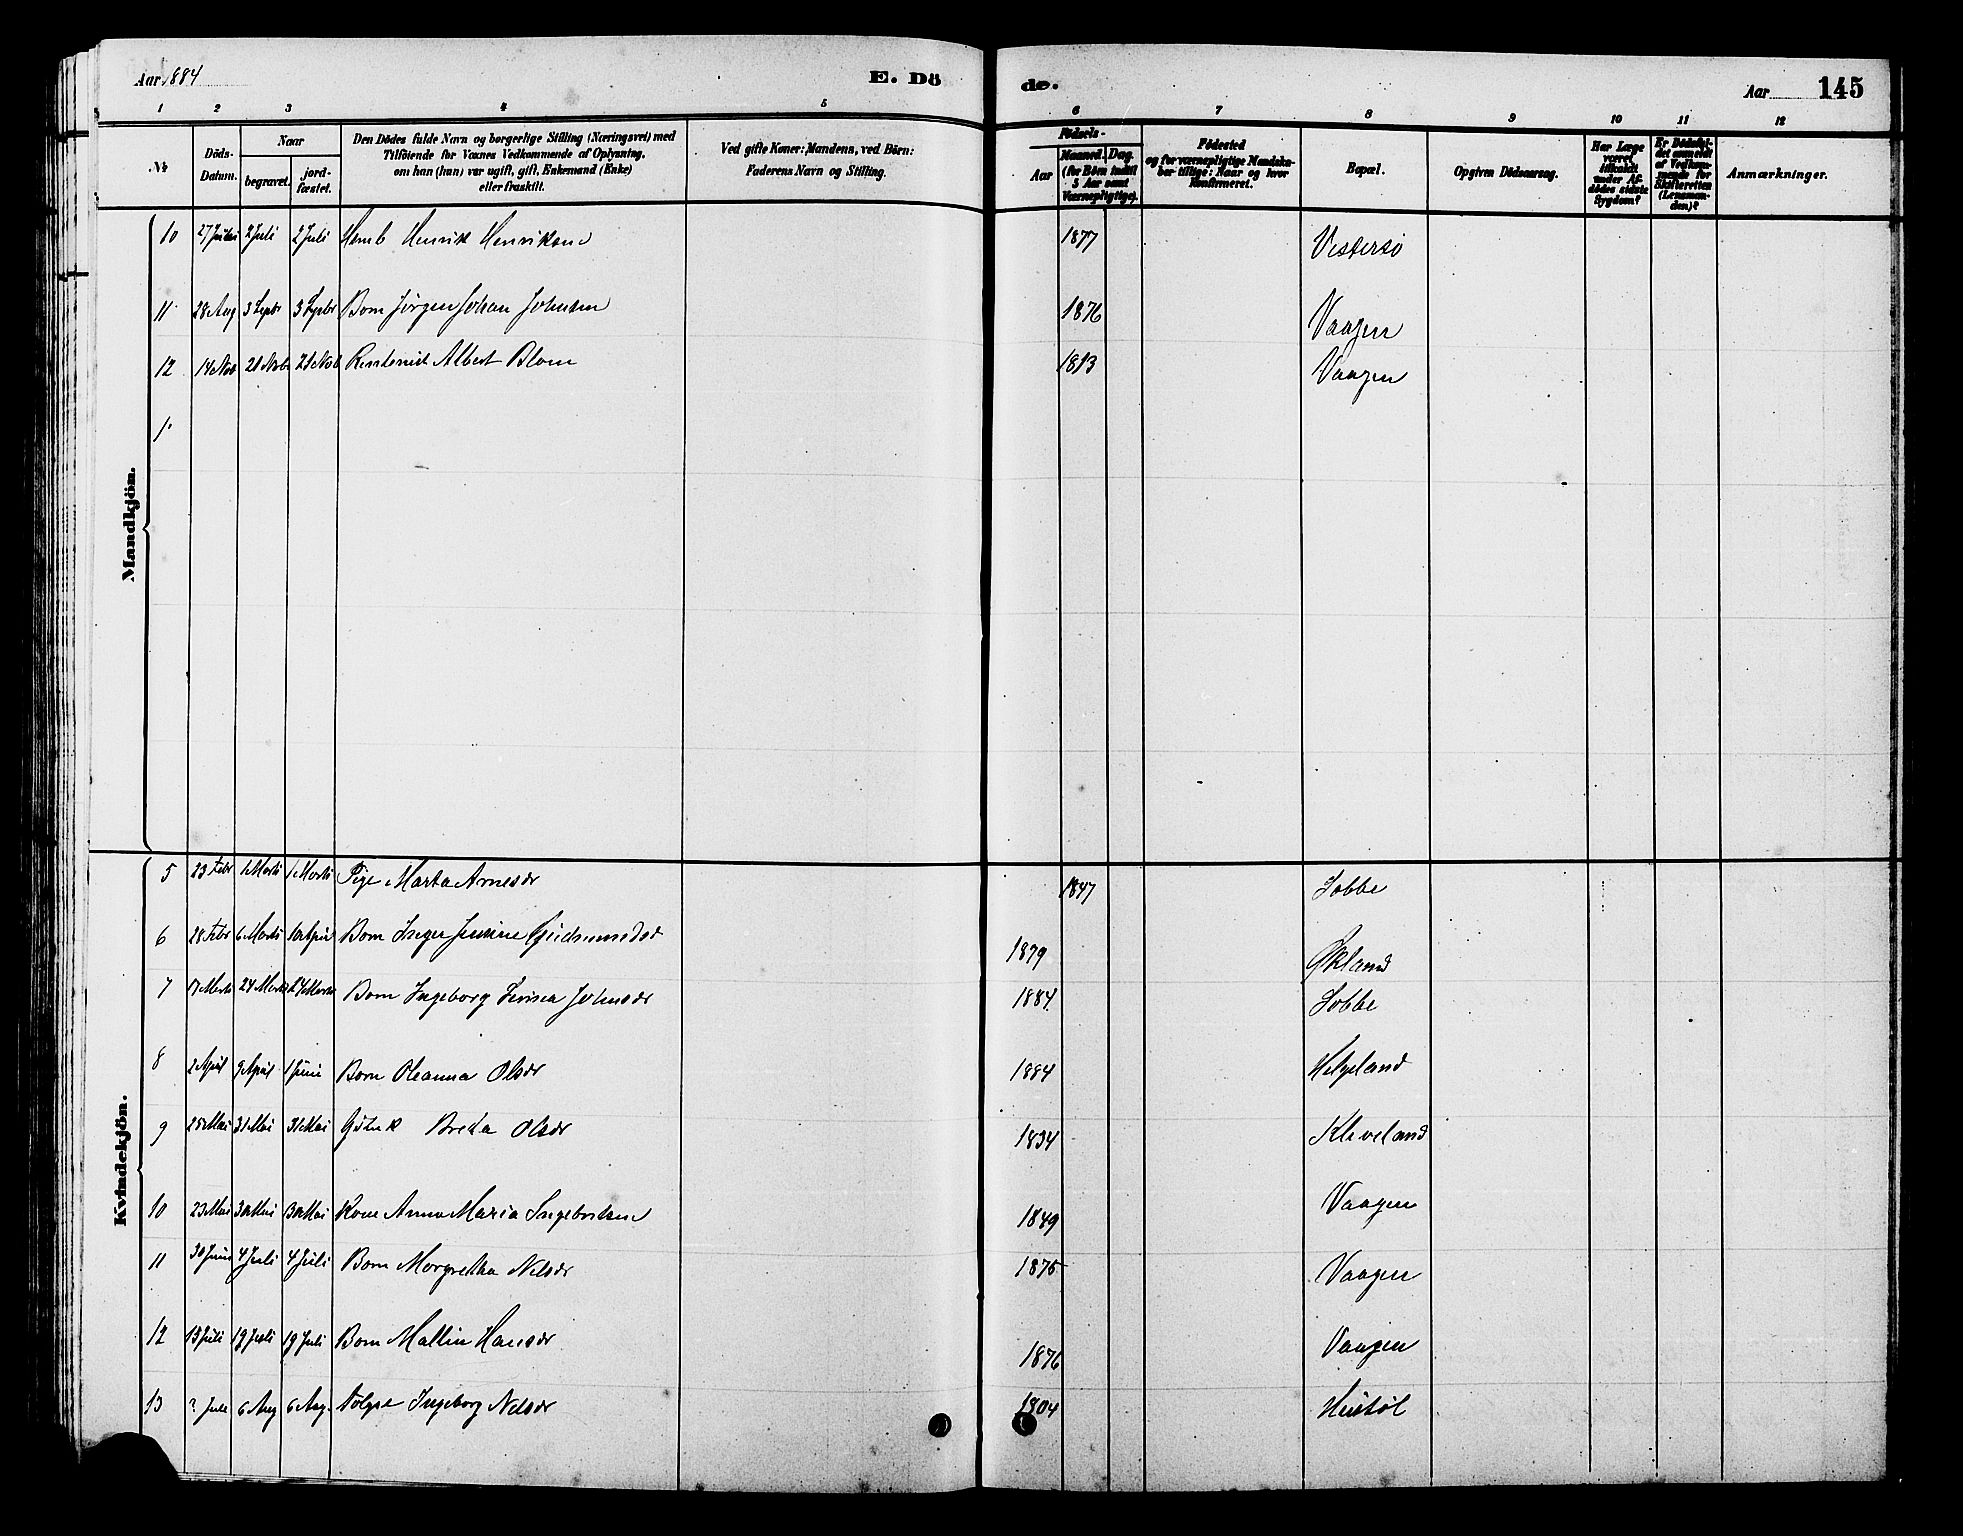 Aar 1884 E. Dö
de. Aar 145
1 2 3 4 5 6 7 8 9 10 11 12
№
Döds-Datum.
Naar
begravet.
jord-fæstet.
Den Dödes fulde Navn og borgerlige Stilling (Næringsvei) med
Tilföiende for Voxnes Vedkommende af Oplysning,
om han (hun) var ugift, gift, Enkemand (Enke)
eller fraskilt.
Ved gifte Koner: Mandens, ved Börn:
Faderens Navn og Stilling.
Födsels-
Aar
Maaned. Dag.
(for Börn indtil
5 Aar samt
Værnepligtige).
Födested
og for værnepligtige Mandska-
ber tillige: Naar og hvor
Konfirmeret.
Bopæl.
Opgiven Dödsaarsag.
Har Læge
været
tilkaldt
under Af-
dödes sidste
Sygdom?
Er Dödsfal-
det anmeldt
af Vedkom-
mende for
Skifteretten
(Lensman-
den)?
Anmærkninger.
Mandkjön.
10 27 Juni 2 Juli 2 Juli Henrik Henriksen 1877 Vestersö
11 28 Aug 3 Septbr 3 Septbr Barn Jörgen Johan Johnsen 1876 Vaagen
12 14 Nov 21 Nob 21 Nob Albert Blom 1813 Vaagen
1
Kvindekjön.
5 23 Febr 1 Marts 1 Marts Pige Marta Arnesdr 1847 Lobbe
6 28 Febr 6 Marts Barn Inger 1879 Økland
7 17 Marts 24 Marts 24 Marts Barn Ingeborg Johnsdr 1884 Lobbe
8 2 April 9 April 1 Juni Barn Oleanna Olsdr 1884 Helgeland
9 25 Mai 31 Mai 31 Mai Breta Olsdr 1834 Kleveland
10 23 Mai 30 Mai 30 Mai Kone Anna Maria 1849 Vaagen
11 30 Juni 4 Juli 4 Juli Barn Margretha Nelsdr 1875 Vaagen
12 13 Juli 19 Juli 19 Juli Barn Mallin Hansdr 1876 Vaagen
13 ? Juli 6 Aug 6 Aug. Ingeborg Nelsdr 1804